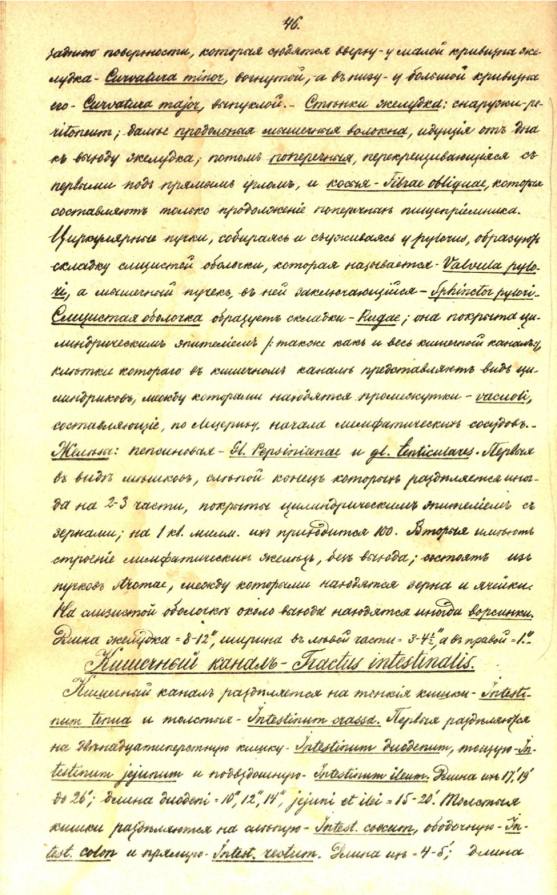 46.
заднюю поверхности, которая сходятся вверху - у малой кривизна же-
лудка - Curvatura minor, вогнутой, а въ низу - у большой кривизна
его - Curvatura major, выпуклой. - Стѣнки желудка: снаружи - pe-
ritoneum; далѣе продольныя мышечныя волокна, идущiя отъ дна
къ выходу желудка; потомъ поперечныя, перекрещивающiяся съ
первыми подъ прямымъ угломъ, и косыя - Fibrae obliquae, которыя
составляютъ только продолженiе поперечныхъ пищепрiемника.
Циркулярные пучки, собираясь и съуживаясь у pylorus, образуютъ
складку слизистой оболочки, которая называется - Valvula pylo-
ri, а мышечный пучекъ, въ ней заключающiйся - Sphincter pylori.-
Слизистая оболочка образуетъ складки - Rugae; она покрыта ци-
линдрическимъ эпителiемъ /: также какъ и весь кишечный каналъ:/,
клѣтки котораго въ кишечномъ каналѣ представляютъ видъ ци-
линдриковъ, между которыми находятся промежутки - vacuoli,
составляющiе, по начала лимфатическихъ сосудовъ. -
Железы: пепсиновыя - Gl. Pepsinianae и gl. lenticulares. Первыя
въ видѣ мѣшковъ, слѣпой конецъ которыхъ раздѣляется иног-
да на 2-3 части, покрыты цилиндрическимъ эпителiемъ съ
зернами; на 1 кв. милим. ихъ приходится 100. Вторыя имѣютъ
строенiе лимфатическихъ железъ, безъ выхода; состоятъ изъ
пучковъ между которыми находятся зерна и ячейки.
На слизистой оболочкѣ около выхода находятся иногда ворсинки.
Длина желудка = 8-12", ширина въ лѣвой части = 3-4½" а въ правой = 1".
Кишечный каналъ - Tractus intestinalis.
Кишечный каналъ раздѣляется на тонкiя кишки - Intesti-
num tenua и толстыя - Intestinum crassa. Первыя раздѣляются
на двѣнадцатиперстную кишку - Intestinum duodenum, тощую - In-
testinum jejunum и подвздошную - Intestinum ileum. Длина ихъ 17', 19'
до 26'; длина duodeni = 10", 12", 14", jejuni et ilei = 15-20'. Толстыя
кишки раздѣляются на слѣпую - Intest. coecum, ободочную - In-
test. colon и прямую - Intest. rectum. Длина ихъ - 4-5'; длина